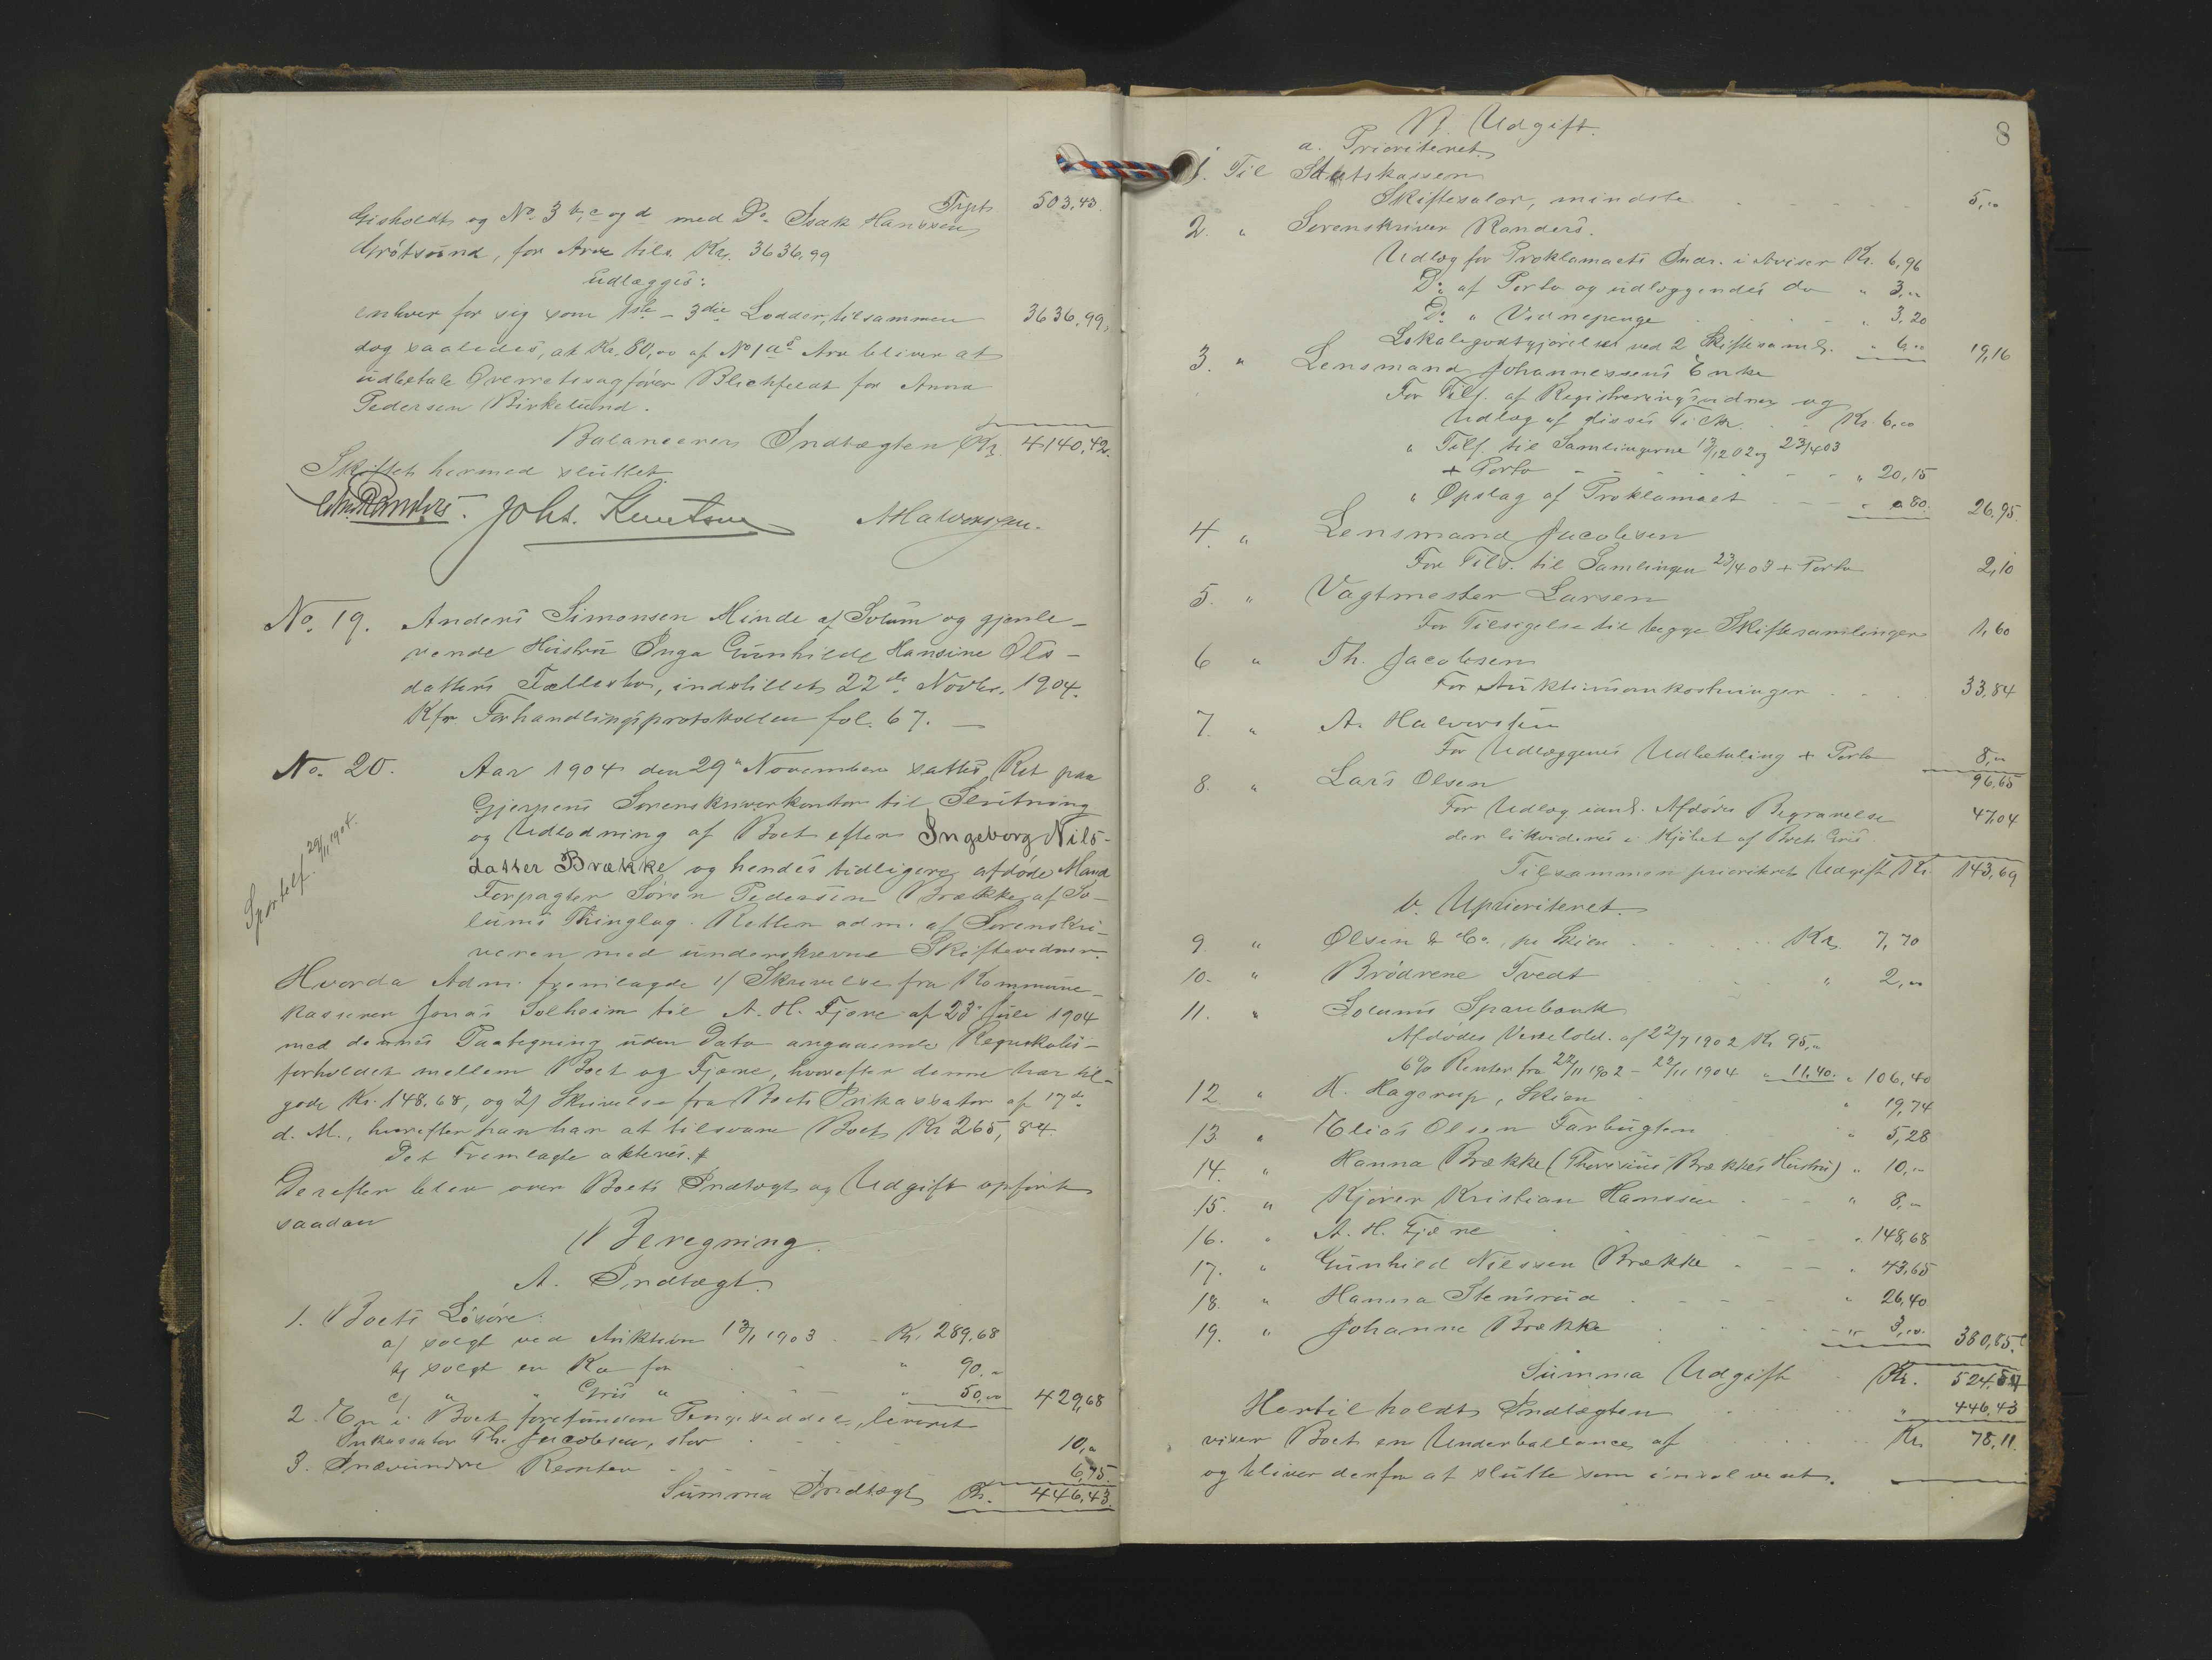 Trpt. 503,43.
Gisholdt og No. 3 b, c og d med Do. Isak Hanssen
Grøtsund, for Arv tils. Kr. 3636,99
udlægges:
enhver for sig som 1ste - 3die Lodder, tilsammen 3636,99,
dog saaledes, at Kr. 80,00 af No 1 a's Arv bliver at
udbetale Overretssagfører Blichfeldt for Anna
Pedersen Birkelund.
Balancerer Indtægten Kr. 4140,42.
Skiftet hermed sluttet.
Chr. Randers. Johs. Knutsen A Halvorsen.
No. 19. Anders Simonsen Minde af Solum og gjenle-
vende Hustru Inga Gunhilde Hansine Ols-
datters Fællesbo, indstillet 22de Novbr. 1904.
Kfr. Forhandlingsprotokollen fol. 67.
No. 20. Aar 1904 den 29" November sattes Ret paa
Gjerpens Sorenskriverkontor til Slutning
og Udlodning af Boet efter Ingeborg Nils-
datter Brække og hendes tidligere afdøde Mand
Forpagter Søren Pedersen Brække af So-
lums Thinglag. Retten adm. af Sorenskri-
veren med underskrevne Skiftevidner.
Sportelf. 29/11 1904.
Hvorda Adm. fremlagde 1/ Skrivelse fra Kommune-
kasserer Jonas Solheim til A. H. Fjære af 23' Juli 1904
med dennes Paategning uden Dato angaaende Regnskabs-
forholdet mellem Boet og Fjære, hvorefter denne har til-
gode Kr. 148,68, og 2/ Skrivelse fra Boets Inkassator af 17de
d. M., hvorefter han har at tilsvare Boet Kr 265,84.
Det Fremlagte akteres.
Derefter blev over Boets Indtægt og Udgift opført
saadan
Beregning.
A. Indtægt.
1. Boets Løsøre:
a/ solgt ved Auktion 13/1 1903 Kr. 289,68
b/ solgt en Ko for " 90,"
c/ " " Gris " " 50,00 429,68
2. En i Boet forefunden Pengeseddel, leveret
Inkassator Th. Jacobsen, stor 10,"
3. Indvundne Renter 6,75.
Summa Indtægt Kr. 446,43.
8
B. Udgift.
a. Prioriteret.
1. Til Statskassen
Skiftesalær, mindste 5,00
2. " Sorenskriver Randers.
Udlæg for Proklamaets Indr. i Aviser Kr. 6,96
Do. af Porto og udlæggendes do " 3,"
Do. " Vidnepenge " 3,20
Lokalegodtgjørelse ved 2 Skiftesaml. " 6,00 19,16
3. " Lensmand Johannessens Enke
For Tils. af Registreringsvidner og
Udlæg af disses Kr. 6,00
" Tils. til Samlingerne 13/12 02 og 23/4 03
+ Porto " 20,15
" Opslag af Proklamaet " 0.80. 26,95.
4. " Lensmand Jacobsen
For Tils. til Samlingen 23/4 03 + Porto 2,10
5. " Vagtmester Larsen
For Tilsigelse til begge Skiftesamlinger 1,60
6 " Th. Jacobsen
For Auktionsomkostninger 33,84
7. " A. Halvorsen
For Udlæggenes Udbetaling + Porto 8,00
96,65
8. " Lars Olsen
For Udlæg i anl. Afdødes Begravelse 47,04
der likvideres i Kjøbet af Boets Gris
Tilsammen prioriteret Udgift Kr. 143,69
b. Uprioriteret.
9 " Olsen & Co., pr Skien Kr. 7,70
10. " Brødrene Tvedt " 2,00
11. " Solums Sparebank
Afdødes Vexelobl. af 22/7 1902 Kr 95,"
6% Renter fra 22/11 1902 - 22/11 1904 " 11,40. " 106,40
12. " K. Hagerup, Skien " 19,74
13. " Elias Olsen Farbugten " 5,28
14. " Hanna Brække (Thorvius Brækkes Hustru) " 10,"
15. " Kjører Kristian Hanssen " 8,"
16. " A. H. Fjære " 148,68
17. " Gunhild Nilssen Brække " 43,65
18. " Hanna Stensrud " 26,40
19. " Johanne Brække " 3,00. 380,85.
Summa Udgift Kr. 524,54
Hertil holdt Indtægten " 446,43
viser Boet en Underballance af Kr. 78,11.
og bliver derfor at slutte som insolvent.